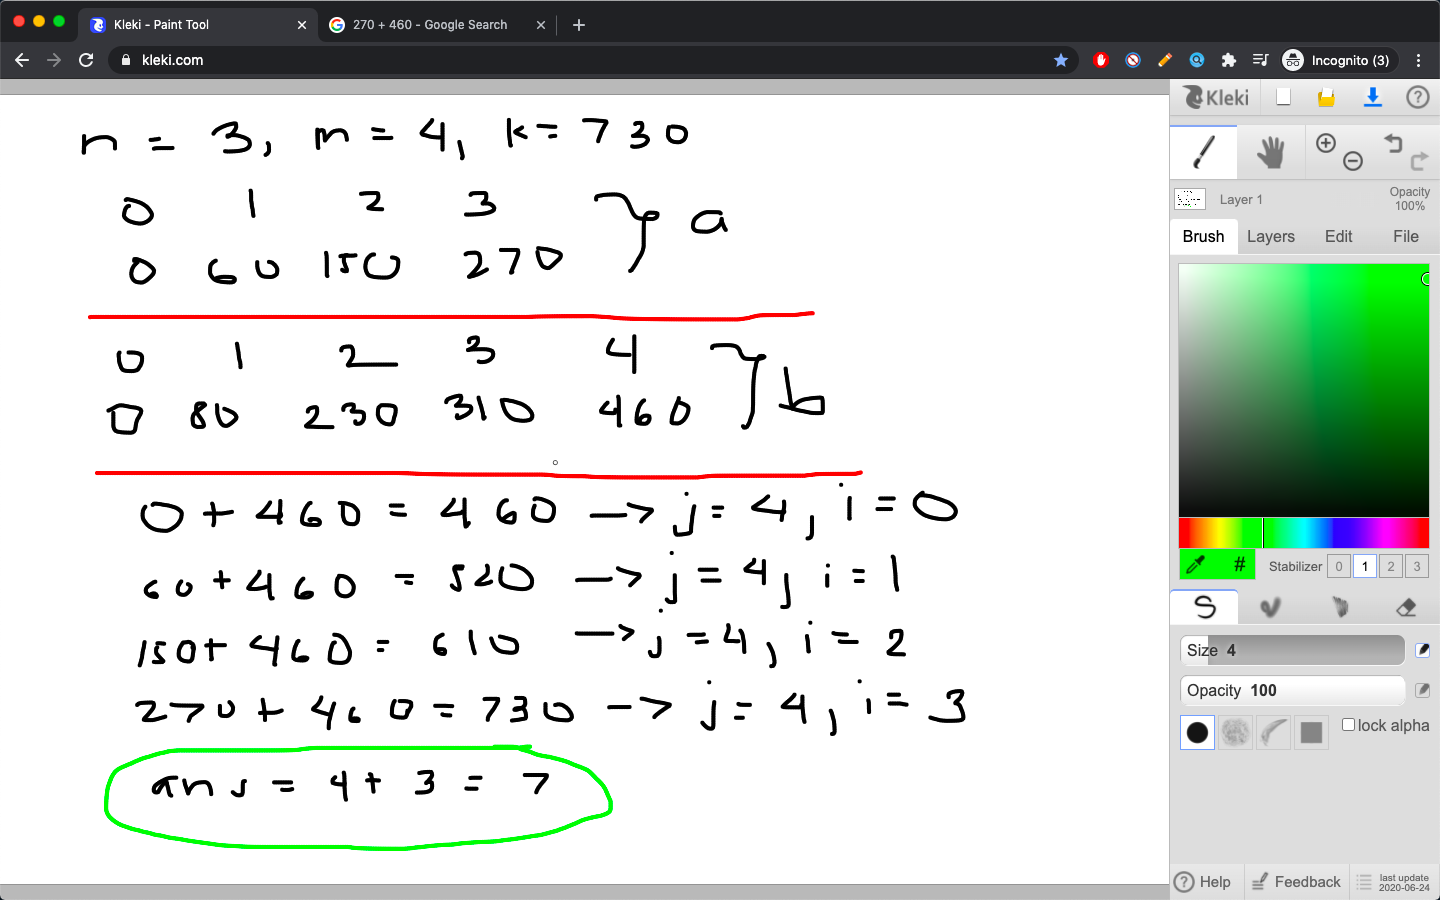 Kleki - Paint Tool
270 + 460 - Google Search
kleki.com
Incognito (3)
n = 3, m = 4, k = 730
0 1 2 3
a
0 60 150 270
0 1 2 3 4
b
0 80 230 310 460
0 + 460 = 460 -> j = 4, i = 0
60 + 460 = 520 -> j = 4, i = 1
150 + 460 = 610 -> j = 4, i = 2
270 + 460 = 730 -> j = 4, i = 3
ans = 4 + 3 = 7
Kleki
Layer 1
Opacity
100%
Brush Layers Edit File
# Stabilizer 0 1 2 3
Size 4
Opacity 100
lock alpha
Help Feedback
last update
2020-06-24